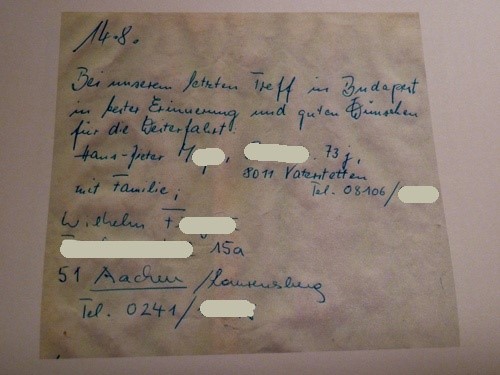 14.8.
Bei unserem letzten Treff in Budapest
in bester Erinnerung und guten Wünschen
für die Weiterfahrt:
Hans-Dieter M , . 73 j,
8011 Vaterstetten
mit Familie; Tel. 08106/
Wilhelm F
15a
51 Aachen /Laurensberg
Tel. 0241/